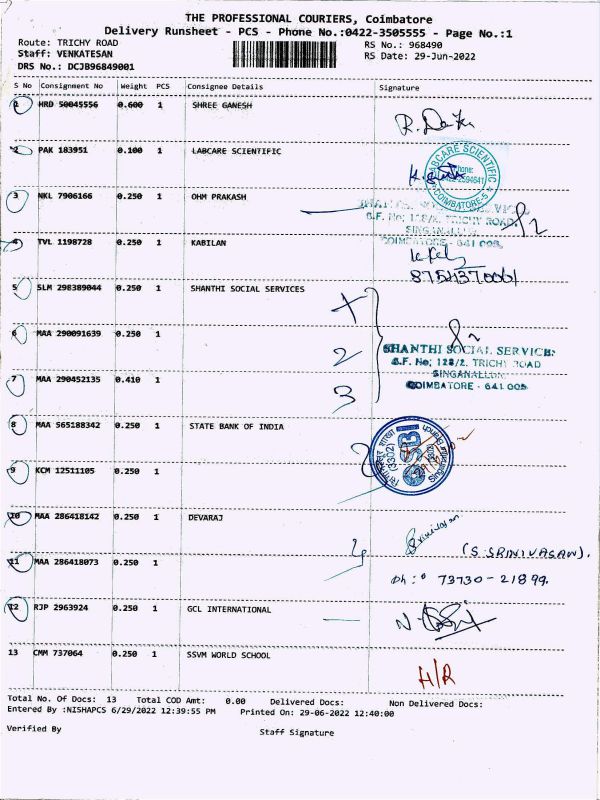 THE PROFESSIONAL COURIERS, Coimbatore
Delivery Runsheet - PCS - Phone No.:0422-3505555 - Page No.:1
Route: TRICHY ROAD RS No.: 968490
Staff: VENKATESAN RS Date: 29-Jun-2022
DRS No.: DCJB96849001
S No Consignment No Weight PCS Consignee Details Signature
1 HRD 50045556 0.600 1 SHREE GANESH
2 PAK 183951 0.100 1 LABCARE SCIENTIFIC
LABCARE SCIENTIFIC
COIMBATORE-5
3 NKL 7906166 0.250 1 OHM PRAKASH
S.F. No; 128/2, TRICHY ROAD,
SINGANALLUR
COIMBATORE - 641 005
4 TVL 1198728 0.250 1 KABILAN
8754370061
5 SLM 298389044 0.250 1 SHANTHI SOCIAL SERVICES
6 MAA 290091639 0.250 1
2
SHANTHI SOCIAL SERVICES
S.F. No; 128/2, TRICHY ROAD
SINGANALLUR
COIMBATORE - 641 005
7 MAA 290452135 0.410 1
3
8 MAA 565188342 0.250 1 STATE BANK OF INDIA
SBI
9 KCM 12511105 0.250 1
10 MAA 286418142 0.250 1 DEVARAJ
Srinivasan
(S.SRINIVASAN).
11 MAA 286418073 0.250 1
Ph: 73730-21899.
12 RJP 2963924 0.250 1 GCL INTERNATIONAL
13 CMM 737064 0.250 1 SSVM WORLD SCHOOL
H/R
Total No. Of Docs: 13 Total COD Amt: 0.00 Delivered Docs: Non Delivered Docs:
Entered By :NISHAPCS 6/29/2022 12:39:55 PM Printed On: 29-06-2022 12:40:00
Verified By Staff Signature